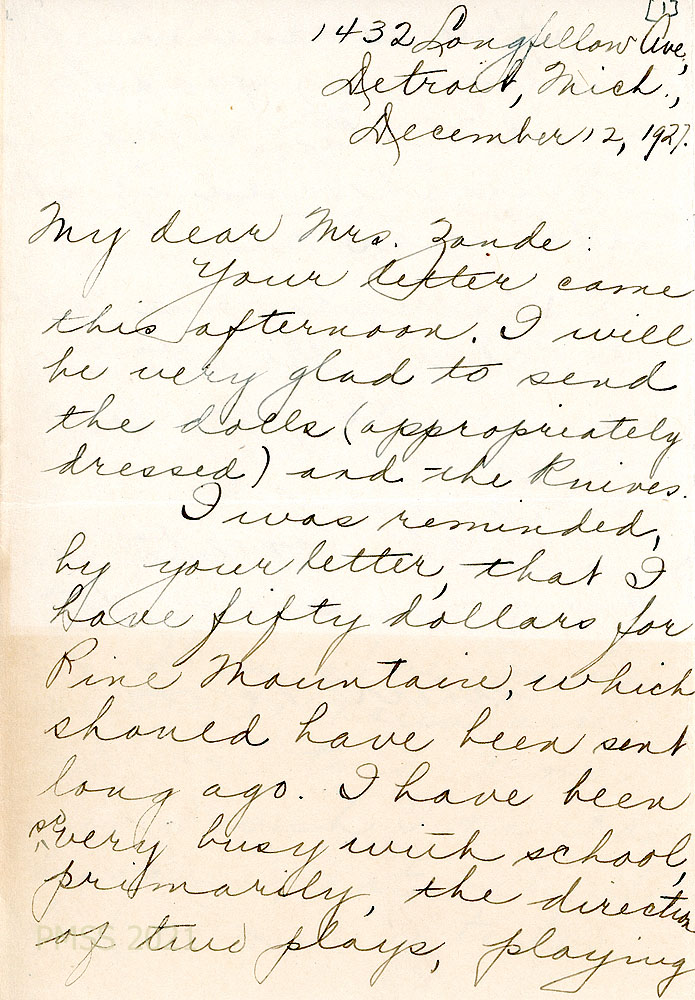 [1]
1432 Longfellow Ave.,
Detroit, Mich.,
December 12, 1927.
My dear Mrs. Zande:
Your letter came
this afternoon. I will
be very glad to send
the dolls (appropriately
dressed) and the knives.
I was reminded,
by your letter, that I
have fifty dollars for
Pine Mountain, which
should have been sent
long ago. I have been
so very busy with school,
primarily, the direction
of two plays, playing
PMSS 2011